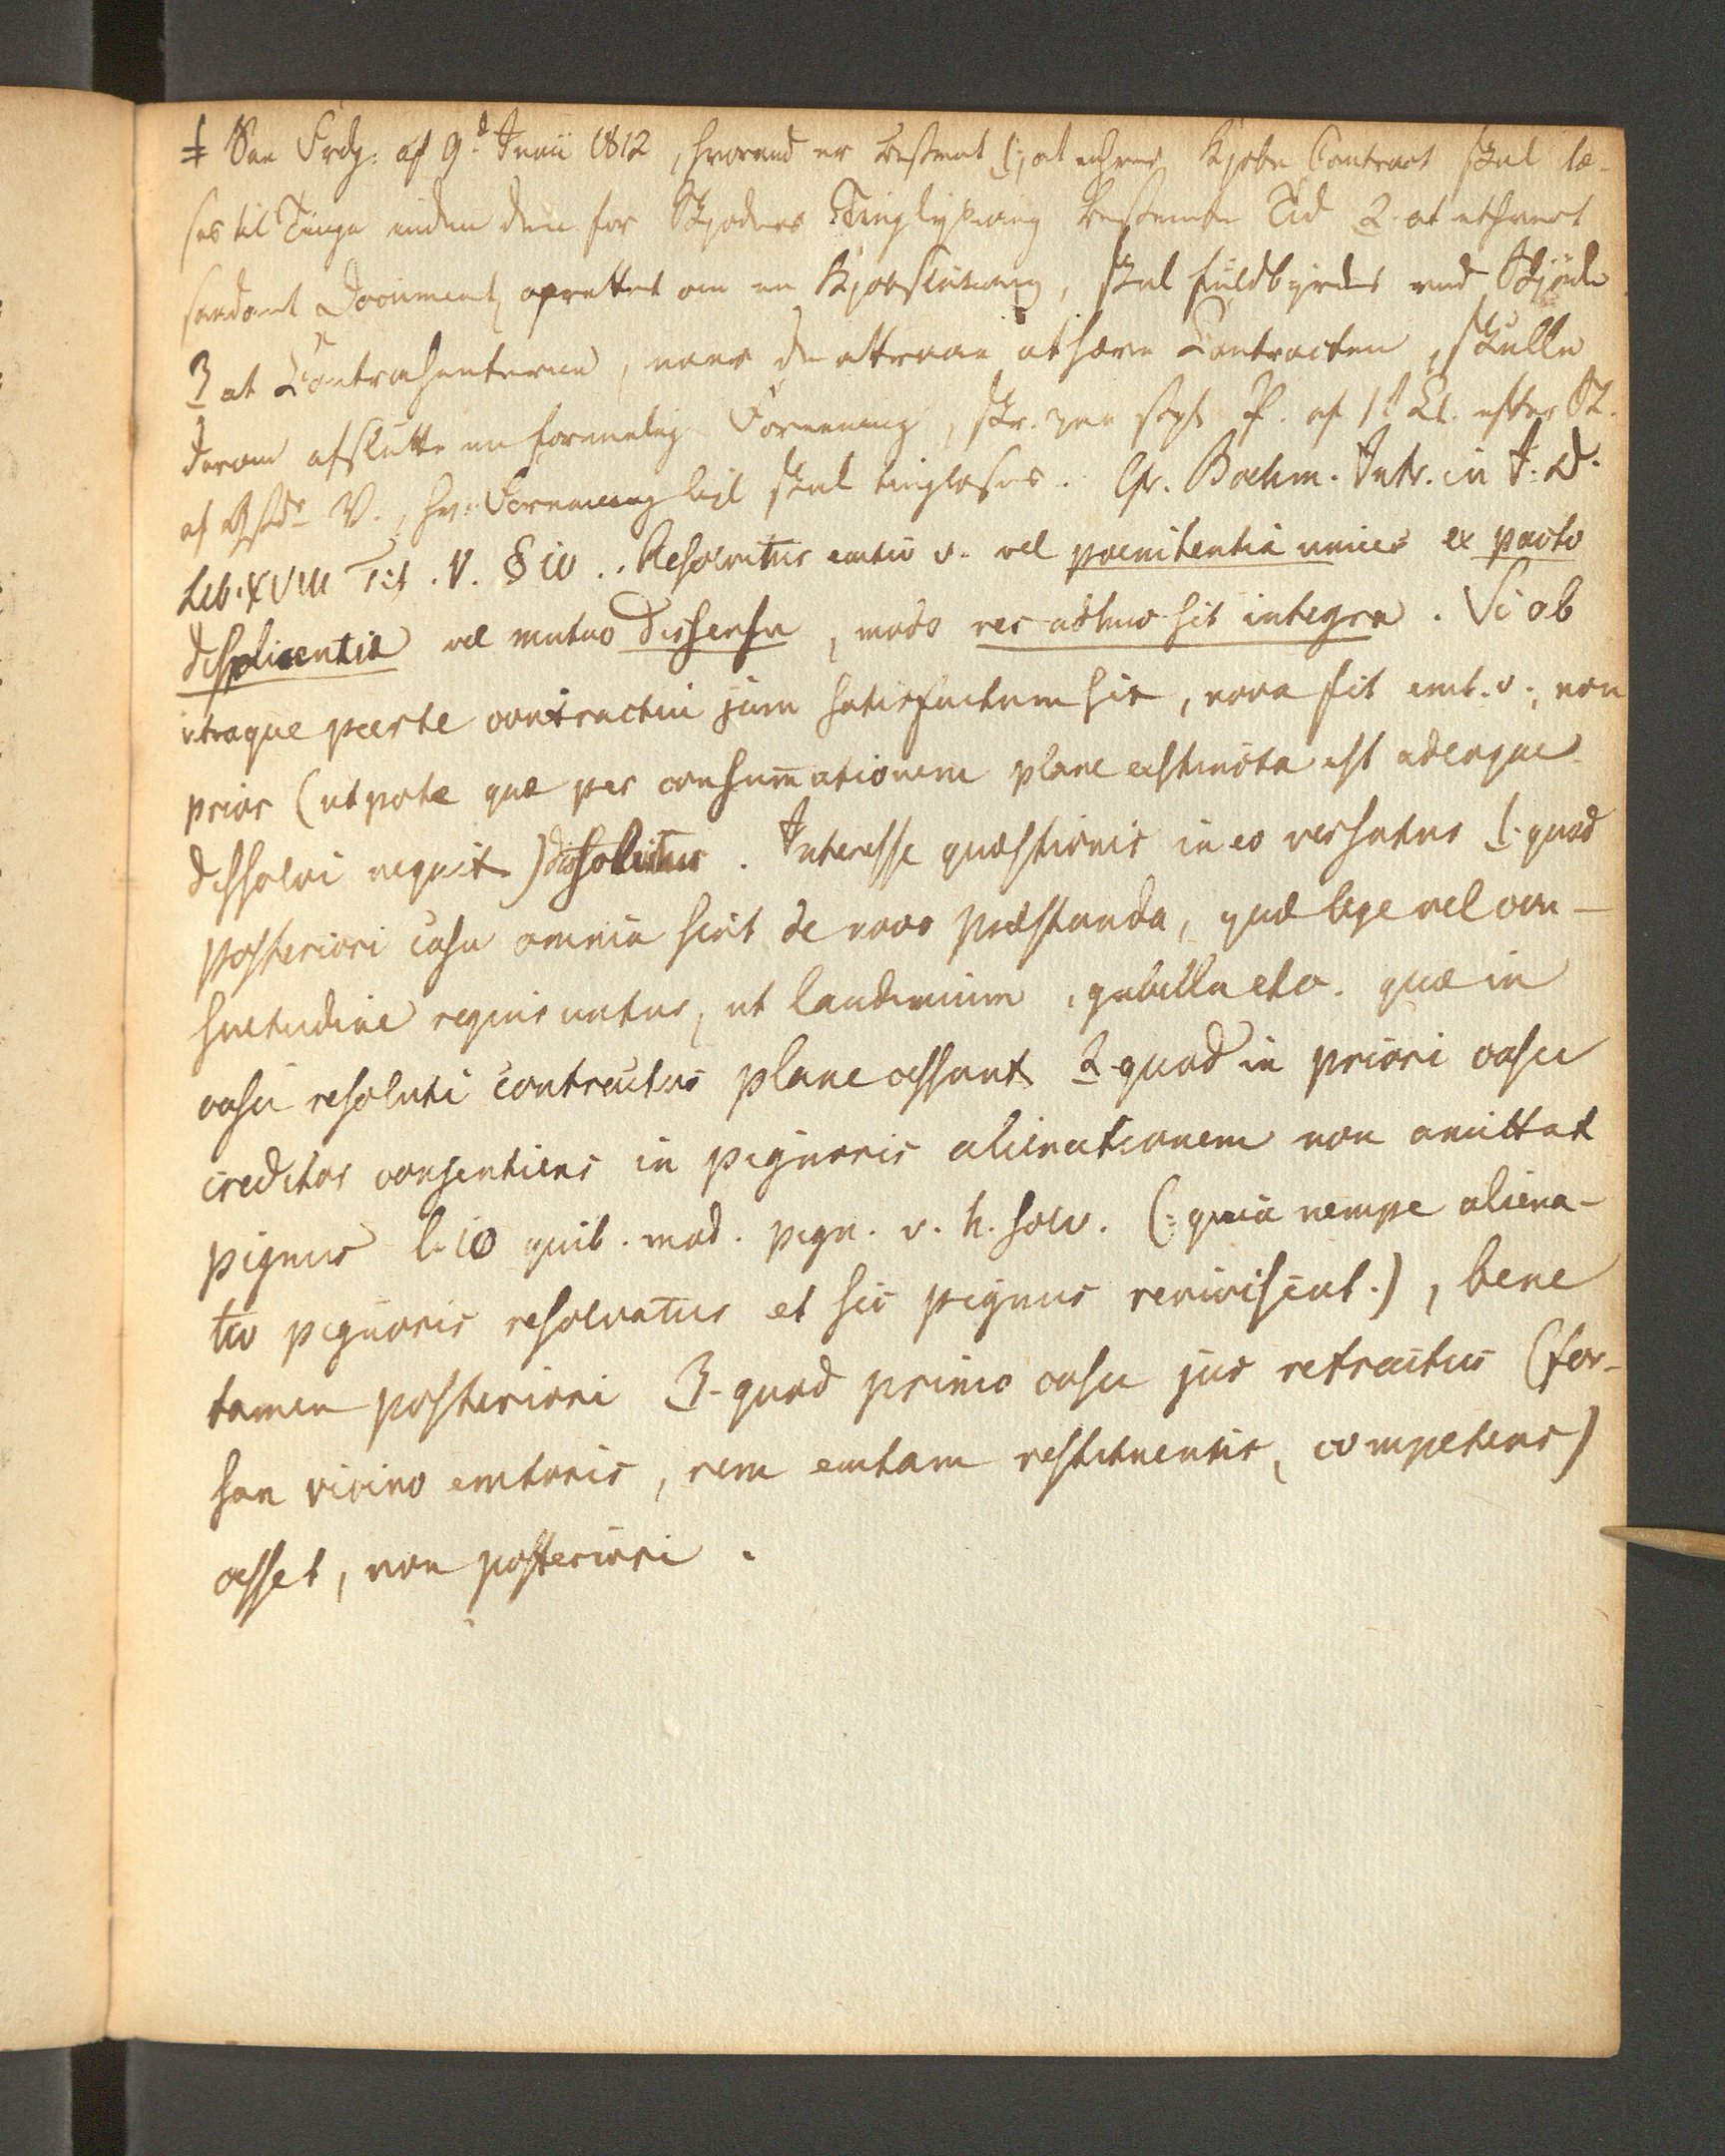 ‡ See Frdg: af 9d Junii 1812, hvorved er bestemt 1, at enhver Kjøbe Contract skal læ-
ses til Tinge inden den for Skjøders Tinglysning bestemte Tid 2. at ethvert
saadant Document, oprettet om en Kjøbslutning, skal fuldbyrdes ved Skjøde
3 at Contrahenterne, naar de attraae at hæve Contracten, skulle
derom afslutte en formelig Forening, skr. paa stpl. P. af 1ste Cl. efter St.
af V., hv: Forening ligel. skal tinglæses. Cfr. Boehm. Intr. in J. D.
Lib. XVIII Tit. V. § 10. Resolvitur emtio v. vel poenitentia unius ex pacto
displicentiæ vel mutuo dissensu, modo res adhuc sit integra. Si ab
utraque parte contractui jam satisfactum sit, nova fit emt. v., non
prior (utpote quæ per consummationem plane extincta est adeoque
dissolvi nequit) dissolvitur. Interesse quæstionis in eo versatur 1. quod
posteriori casu omnia sint de novo præstanda, quæ lege vel con-
suetudine requiruntur, ut laudemium, gabella etc. quæ in
casu resoluti contractus plane cessant 2 quod in priori casu
creditor consentiens in pignoris alienationem non amittat
pignus l. 10 quib. mod. pign. v. h. solv. (: quia nempe aliena-
tio pignoris resolvatur et sic pignus reviviscat.), bene
tamen posteriori 3. quod primo casu jus retractus (for-
san vicino emtoris, rem emtam restituentis, competens)
cesset, non posteriori.